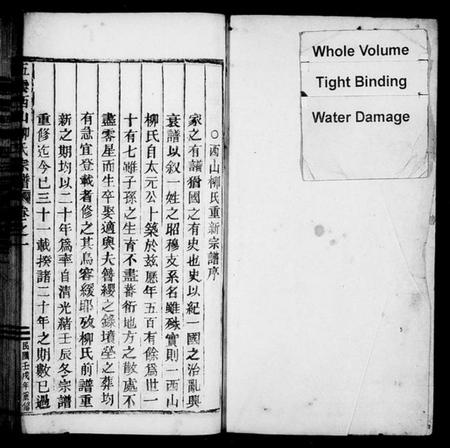 ○西山柳氏重新宗譜序
家之有譜猶國之有史也史以紀一國之治亂興
衰譜以叙一姓之昭穆支系名雖殊實則一西山
柳氏自太元公卜築於兹歷年五百有餘爲世一
十有七雖子孫之生育不盡蕃衍地方之散處不
盡零星而生卒娶適與夫簪纓之錄墳塋之葬均
有急宜登載者修之其烏容緩耶攷柳氏前譜重
新之期均以二十年爲率自清光緒壬辰冬宗譜
重修迄今已三十一載揆諸二十年之期數已過
五 西山柳氏宗譜 卷之一
民國壬戌年重修
Whole Volume
Tight Binding
Water Damage